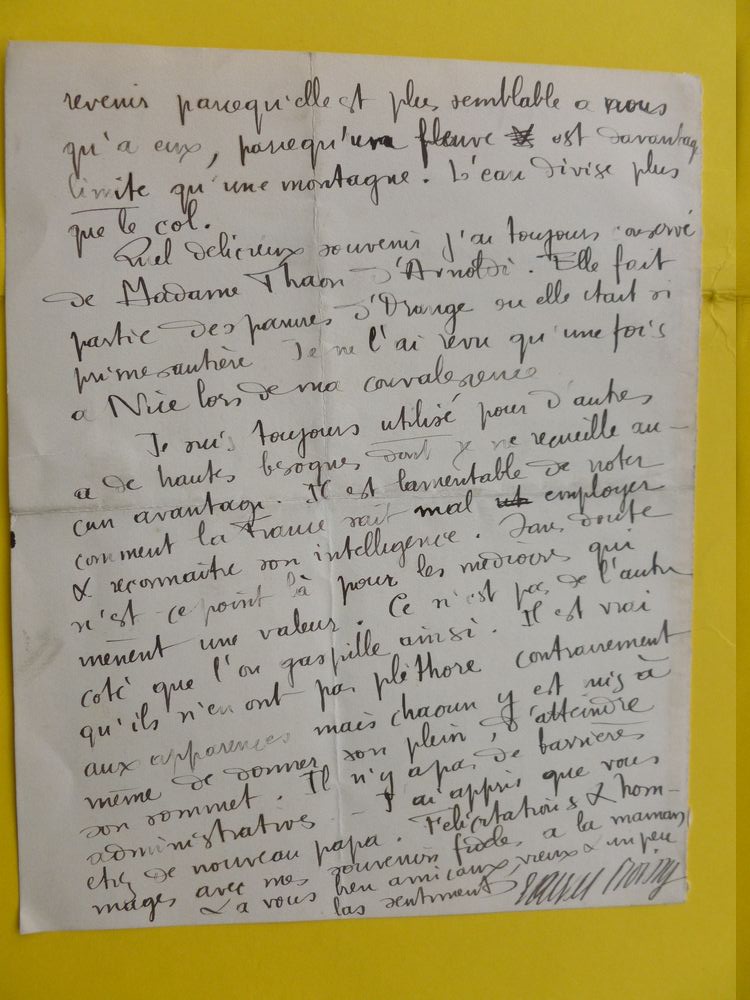 revenir parcequ'elle est plus semblable a nous
qu'a eux, parcequ'un fleuve est davantag
limite qu'une montagne. L'eau divise plus
que le col.
Quel delicieux souvenir j'ai toujours conservé
de Madame Thaon d'Arnoldi. Elle fait
partie des parures d'Orange ou elle etait si
primesautière Je ne l'ai revu qu'une fois
a Nice lors de ma convalescence
Je suis toujours utilisé pour d'autres
a de hautes besognes dont je ne recueille au-
cun avantage. Il est lamentable de noter
comment la France sait mal employer
& reconnaitre son intelligence. Sans doute
n'est-ce point là pour les mediocres qui
mènent une valeur. Ce n'est pas de l'autre
coté que l'on gaspille ainsi. Il est vrai
qu'ils n'en ont pas pléthore contrairement
aux apparences mais chacun y est mis à
même de donner son plein, d'atteindre
son sommet. Il n'y a pas de barrières
administratives - J'ai appris que vous
etiez de nouveau papa. Félicitations & hom-
mages avec mes souvenirs fidèles a la maman
& a vous bien amicaux, vieux & un peu
las sentiments